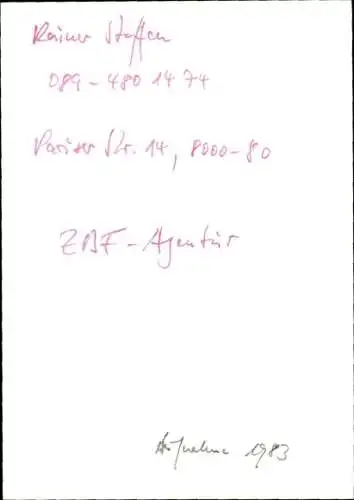 Rainer Steffen
089-480 14 74
Pariser Str. 14, 8000-80
ZBF-Agentur
Aufnahme 1983